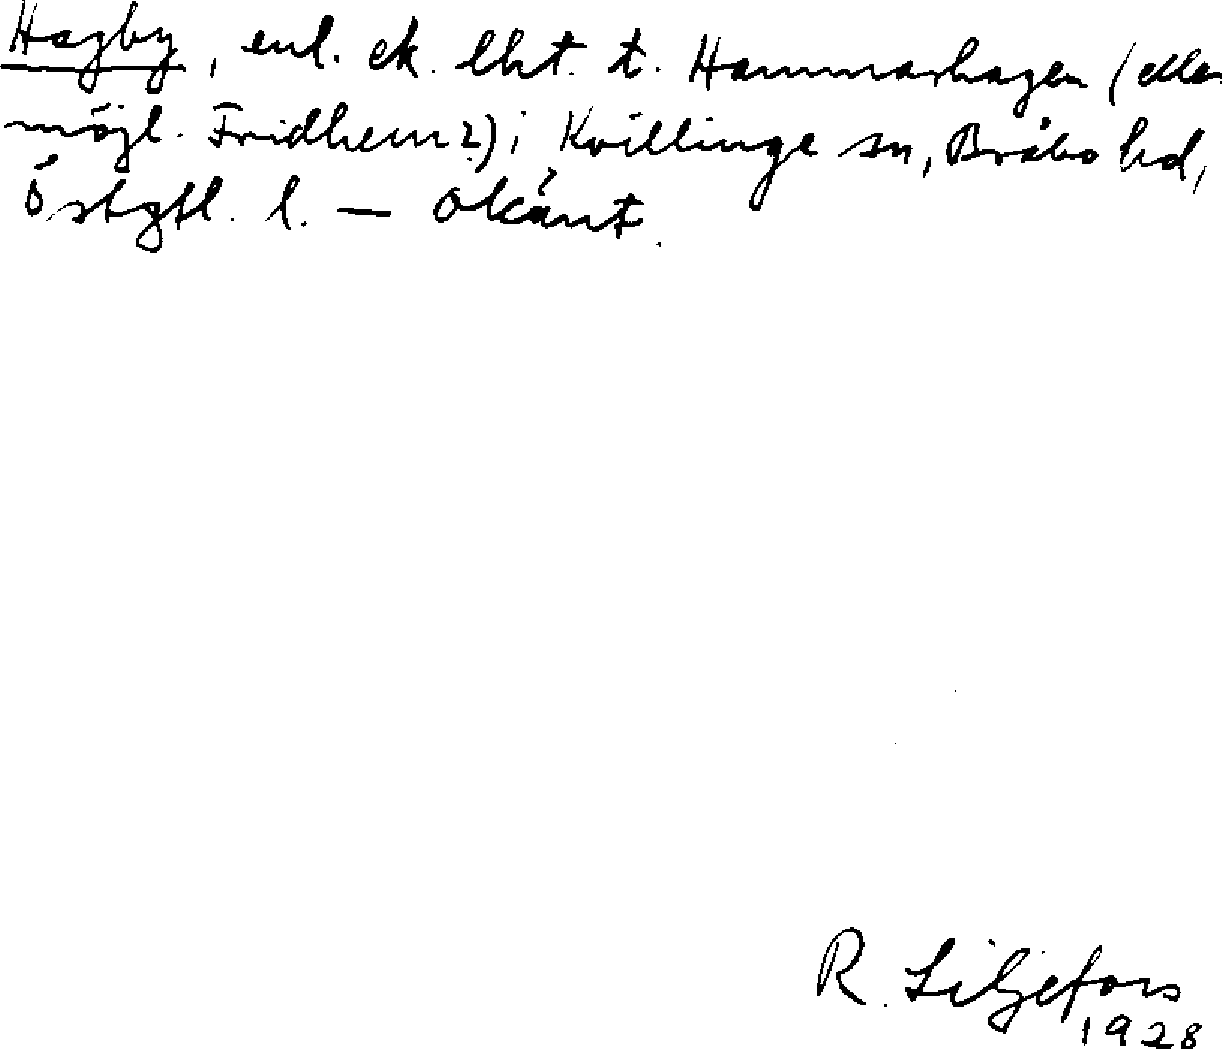 Hagby, enl. ek. lht. t. Hammarhagen (eller
möjl. Fridhem?) i Kvillinge sn, Bråbo hd,
Östgtl. l. — Okänt.
R. Liljefors
1928